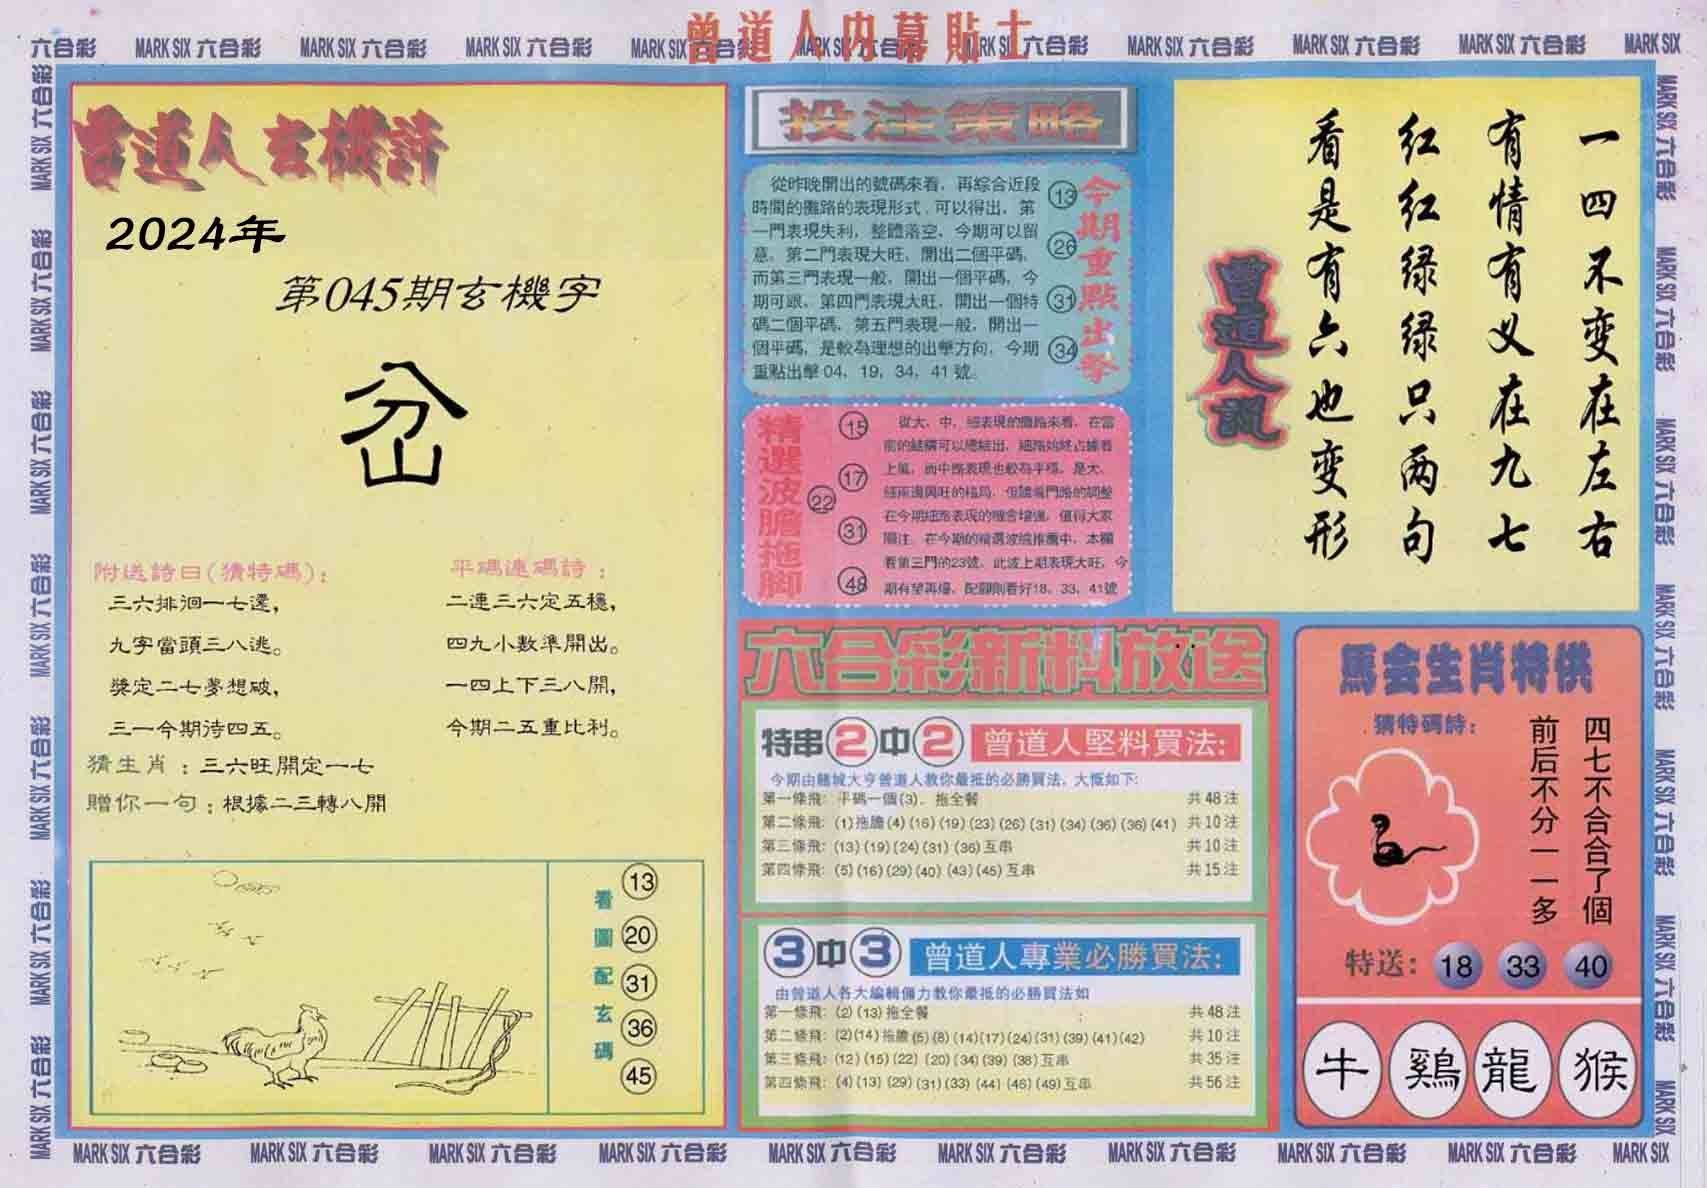 曾道人内幕貼士
六合彩 MARK SIX 六合彩 MARK SIX 六合彩 MARK SIX 六合彩 MARK SIX 六合彩 MARK SIX 六合彩 MARK SIX 六合彩 MARK SIX 六合彩 MARK SIX 六合彩 MARK SIX 六合彩 MARK SIX
曾道人玄機詩
2024年
第045期玄機字
岔
附送詩曰(猜特碼):
三六排徊一七還,
九字當頭三八逃。
獎定二七夢想破,
三一今期待四五。
平碼連碼詩:
二連三六定五穩,
四九小數準開出。
一四上下三八開,
今期二五重比利。
猜生肖:三六旺開定一七
贈你一句:根據二三轉八開
看圖配玄碼
13
20
31
36
45
投注策略
從昨晚開出的號碼來看，再綜合近段
時間的攤路的表現形式，可以得出，第
一門表現失利，整體落空，今期可以留
意，第二門表現大旺，開出二個平碼，
而第三門表現一般，開出一個平碼，今
期可跟，第四門表現大旺，開出一個特
碼二個平碼，第五門表現一般，開出一
個平碼，是較為理想的出擊方向，今期
重點出擊04，19，34，41號。
13
26
31
34
今期重點出擊
精選波膽拖脚
15
17
22
31
48
從大、中、細表現的攤路來看，在當
前的結構可以總結出，細路始終占據着
上風，而中路表現也較為平穩，是大、
細兩邊興旺的格局，但隨着門路的調整
在今期細路表現的機會增強，值得大家
關注，在今期的精選波膽推薦中，本欄
看第三門的23號，此波上期表現大旺，今
期有望再爆，配脚則看好18，33，41號
一四不变在左右
有情有义在九七
红红绿绿只两句
看是有六也变形
曾道人說
六合彩新料放送
特串2中2 曾道人堅料買法:
今期由賭城大亨曾道人教你最抵的必勝買法，大慨如下:
第一條飛: 平碼一個(3)，拖全餐 共48注
第二條飛: (1)拖膽(4)(16)(19)(23)(26)(31)(34)(36)(36)(41) 共10注
第三條飛: (13)(19)(24)(31)(36)互串 共10注
第四條飛: (5)(16)(29)(40)(43)(45)互串 共15注
3中3 曾道人專業必勝買法:
由曾道人各大編輯傾力教你最抵的必勝買法如
第一條飛: (2)(13)拖全餐 共48注
第二條飛: (2)(14)拖膽(5)(8)(14)(17)(24)(31)(39)(41)(42) 共10注
第三條飛: (12)(15)(22)(20)(34)(39)(38)互串 共35注
第四條飛: (4)(13)(29)(31)(33)(44)(46)(49)互串 共56注
馬会生肖特供
猜特碼詩:
四七不合合了個
前后不分一一多
特送: 18 33 40
牛 鷄 龍 猴
MARK SIX 六合彩 MARK SIX 六合彩 MARK SIX 六合彩 MARK SIX 六合彩 MARK SIX 六合彩 MARK SIX 六合彩 MARK SIX 六合彩 MARK SIX 六合彩 MARK SIX 六合彩 MARK SIX